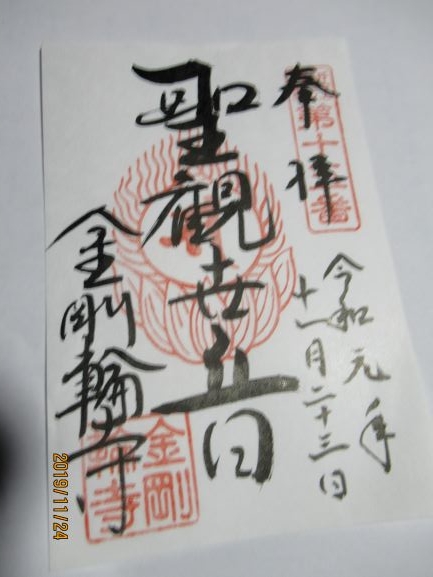 奉拝
第十五番
令和元年
十一月二十三日
聖観世音
金剛輪寺
金剛
輪寺
2019/11/24